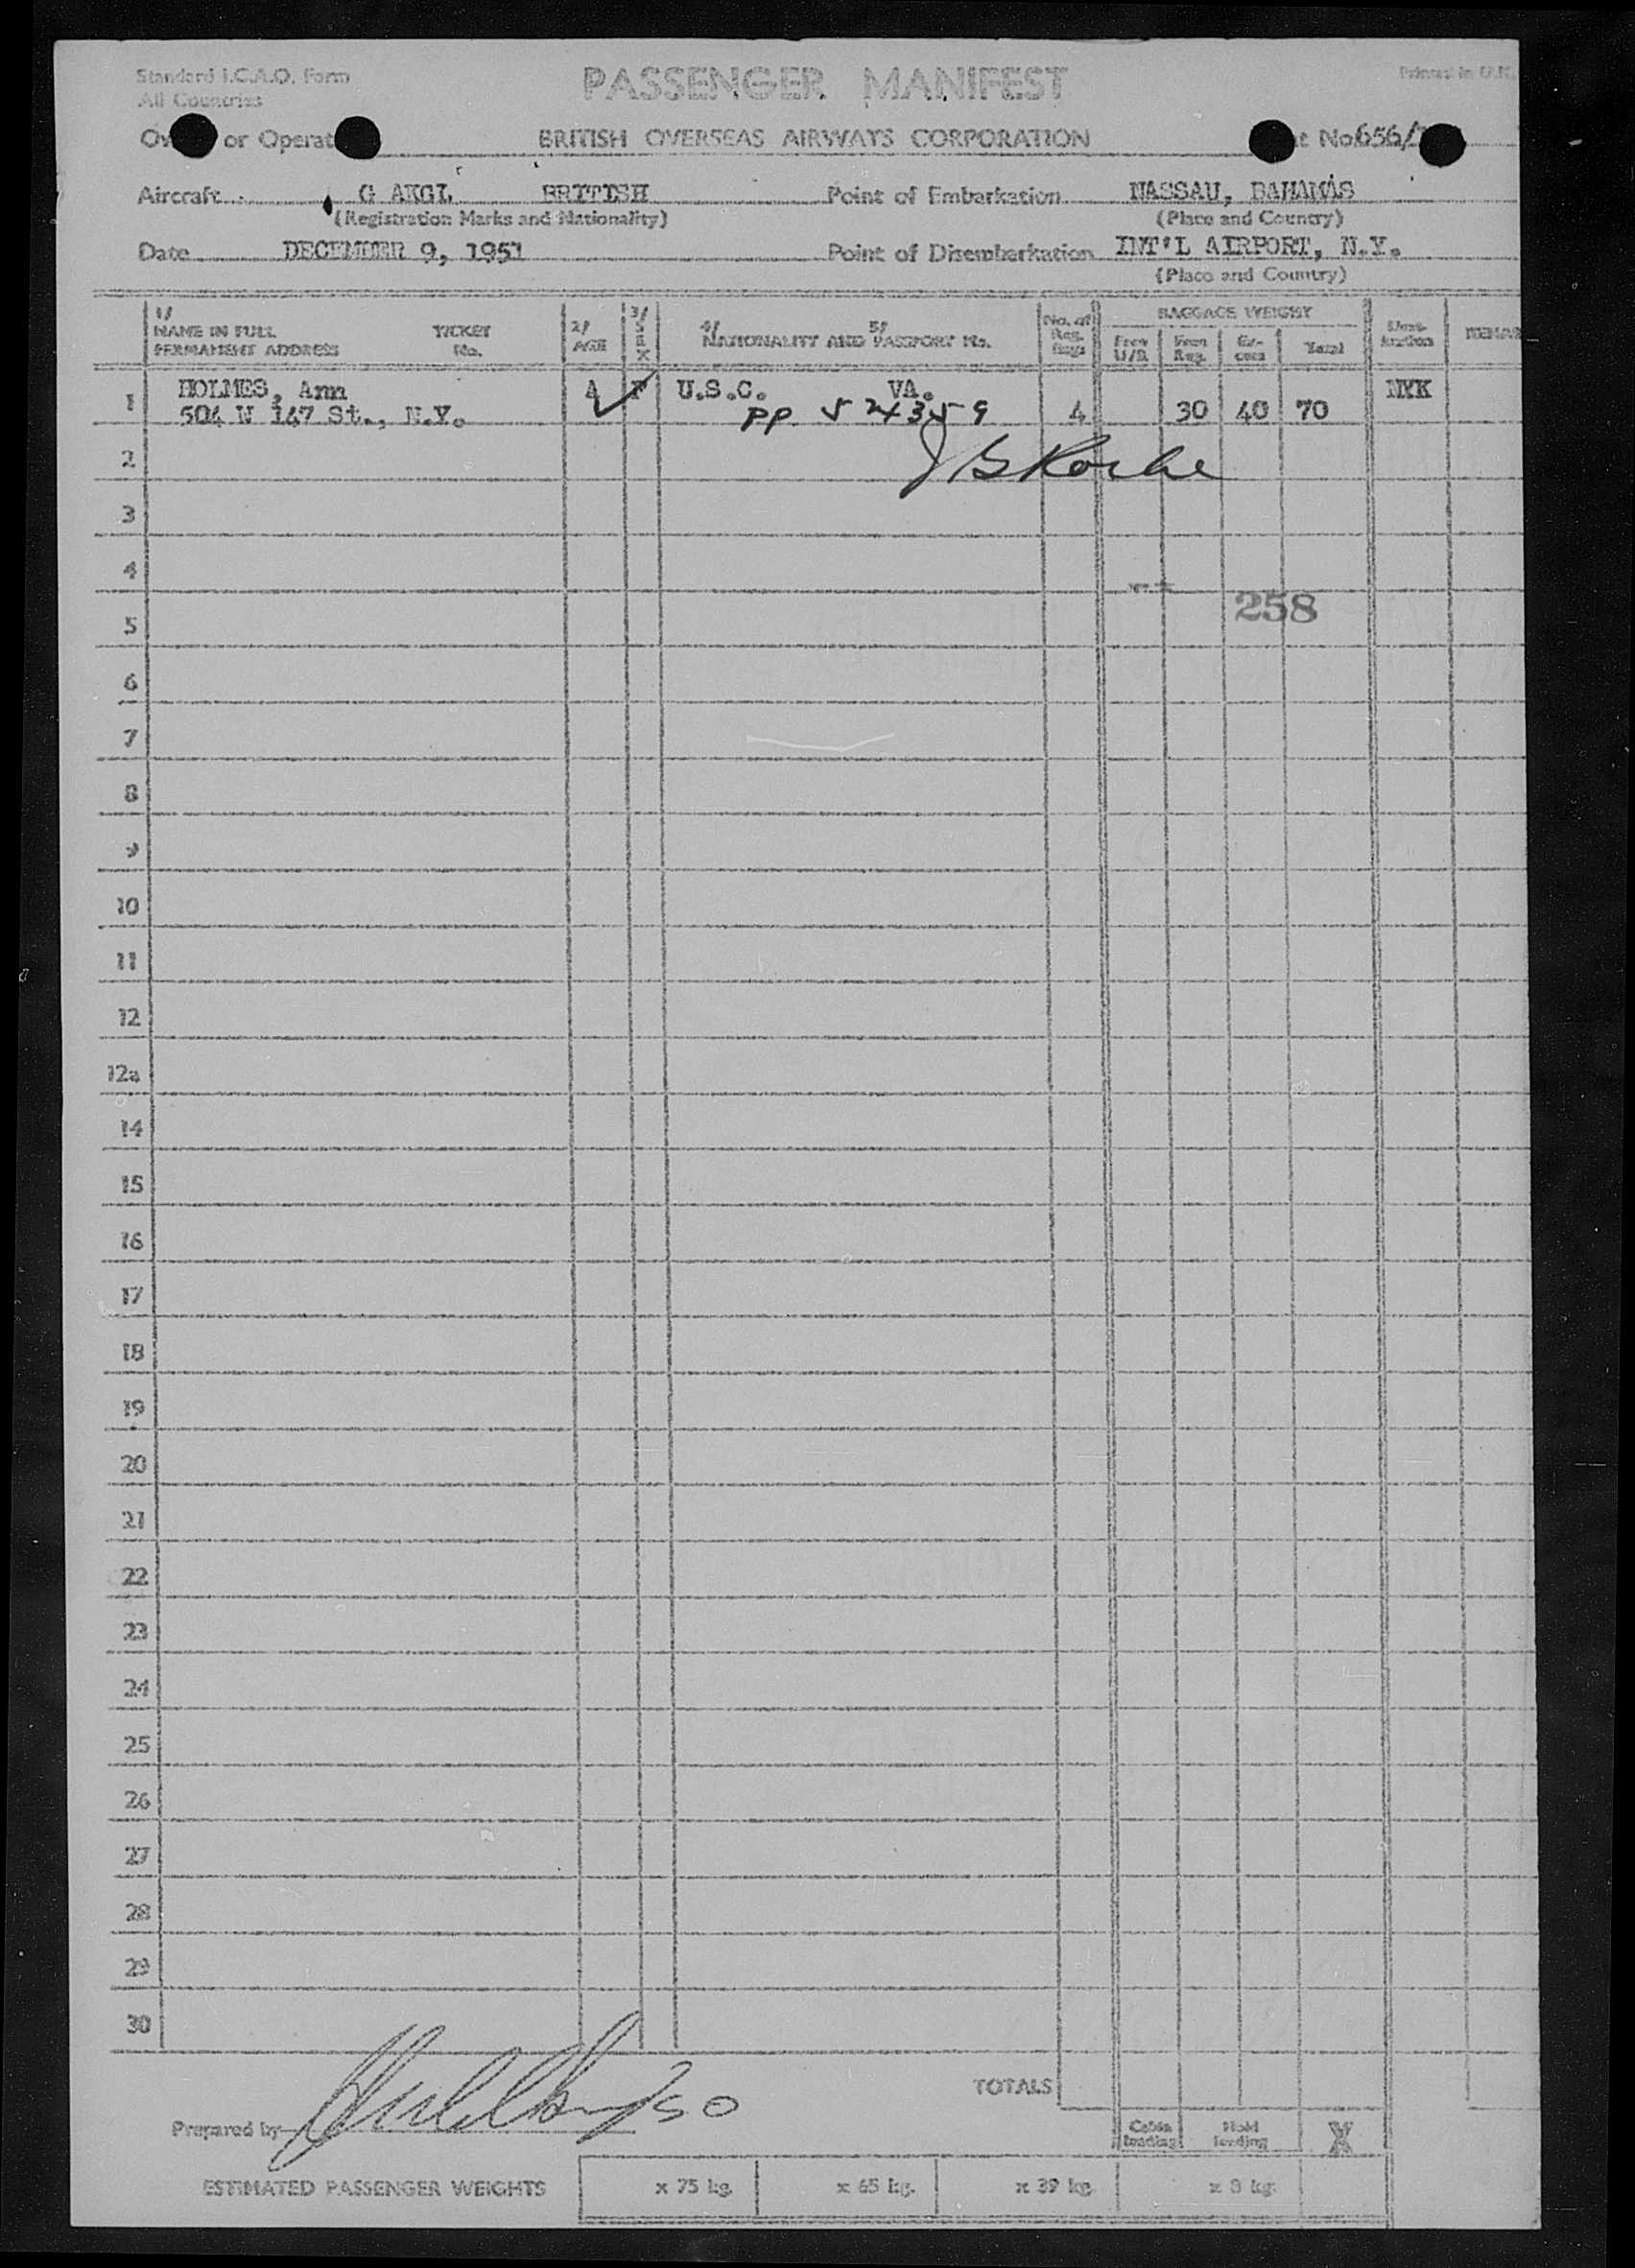 Standard I.C.A.O. Form
All Countries
PASSENGER MANIFEST
Printed in U.K.
or Operat
BRITISH OVERSEAS AIRWAYS CORPORATION
No. 656/
Aircraft G AKGL BRITISH
(Registration Marks and Nationality)
Point of Embarkation NASSAU, BAHAMAS
(Place and Country)
Date DECEMBER 9, 1951
Point of Disembarkation INT'L AIRPORT, N.Y.
(Place and Country)
1/
NAME IN FULL
PERMANENT ADDRESS
TICKET
No.
2/
AGE
3/
SEX
4/ 5/
NATIONALITY AND PASSPORT No.
No. of
Reg.
Bags
BAGGAGE WEIGHT
Free
U/R
Free
Reg.
Ex-
cess
Total
Dest-
ination
REMAR
1 HOLMES, Ann A F U.S.C. VA. NYK
504 W 147 St., N.Y. PP. 524359 4 30 40 70
2
3
4
258
5
6
7
8
9
10
11
12
12a
14
15
16
17
18
19
20
21
22
23
24
25
26
27
28
29
30
TOTALS
Prepared by
Cabin
loading
Hold
loading
X
ESTIMATED PASSENGER WEIGHTS x 75 kg. x 65 kg. x 39 kg. x 8 kg.